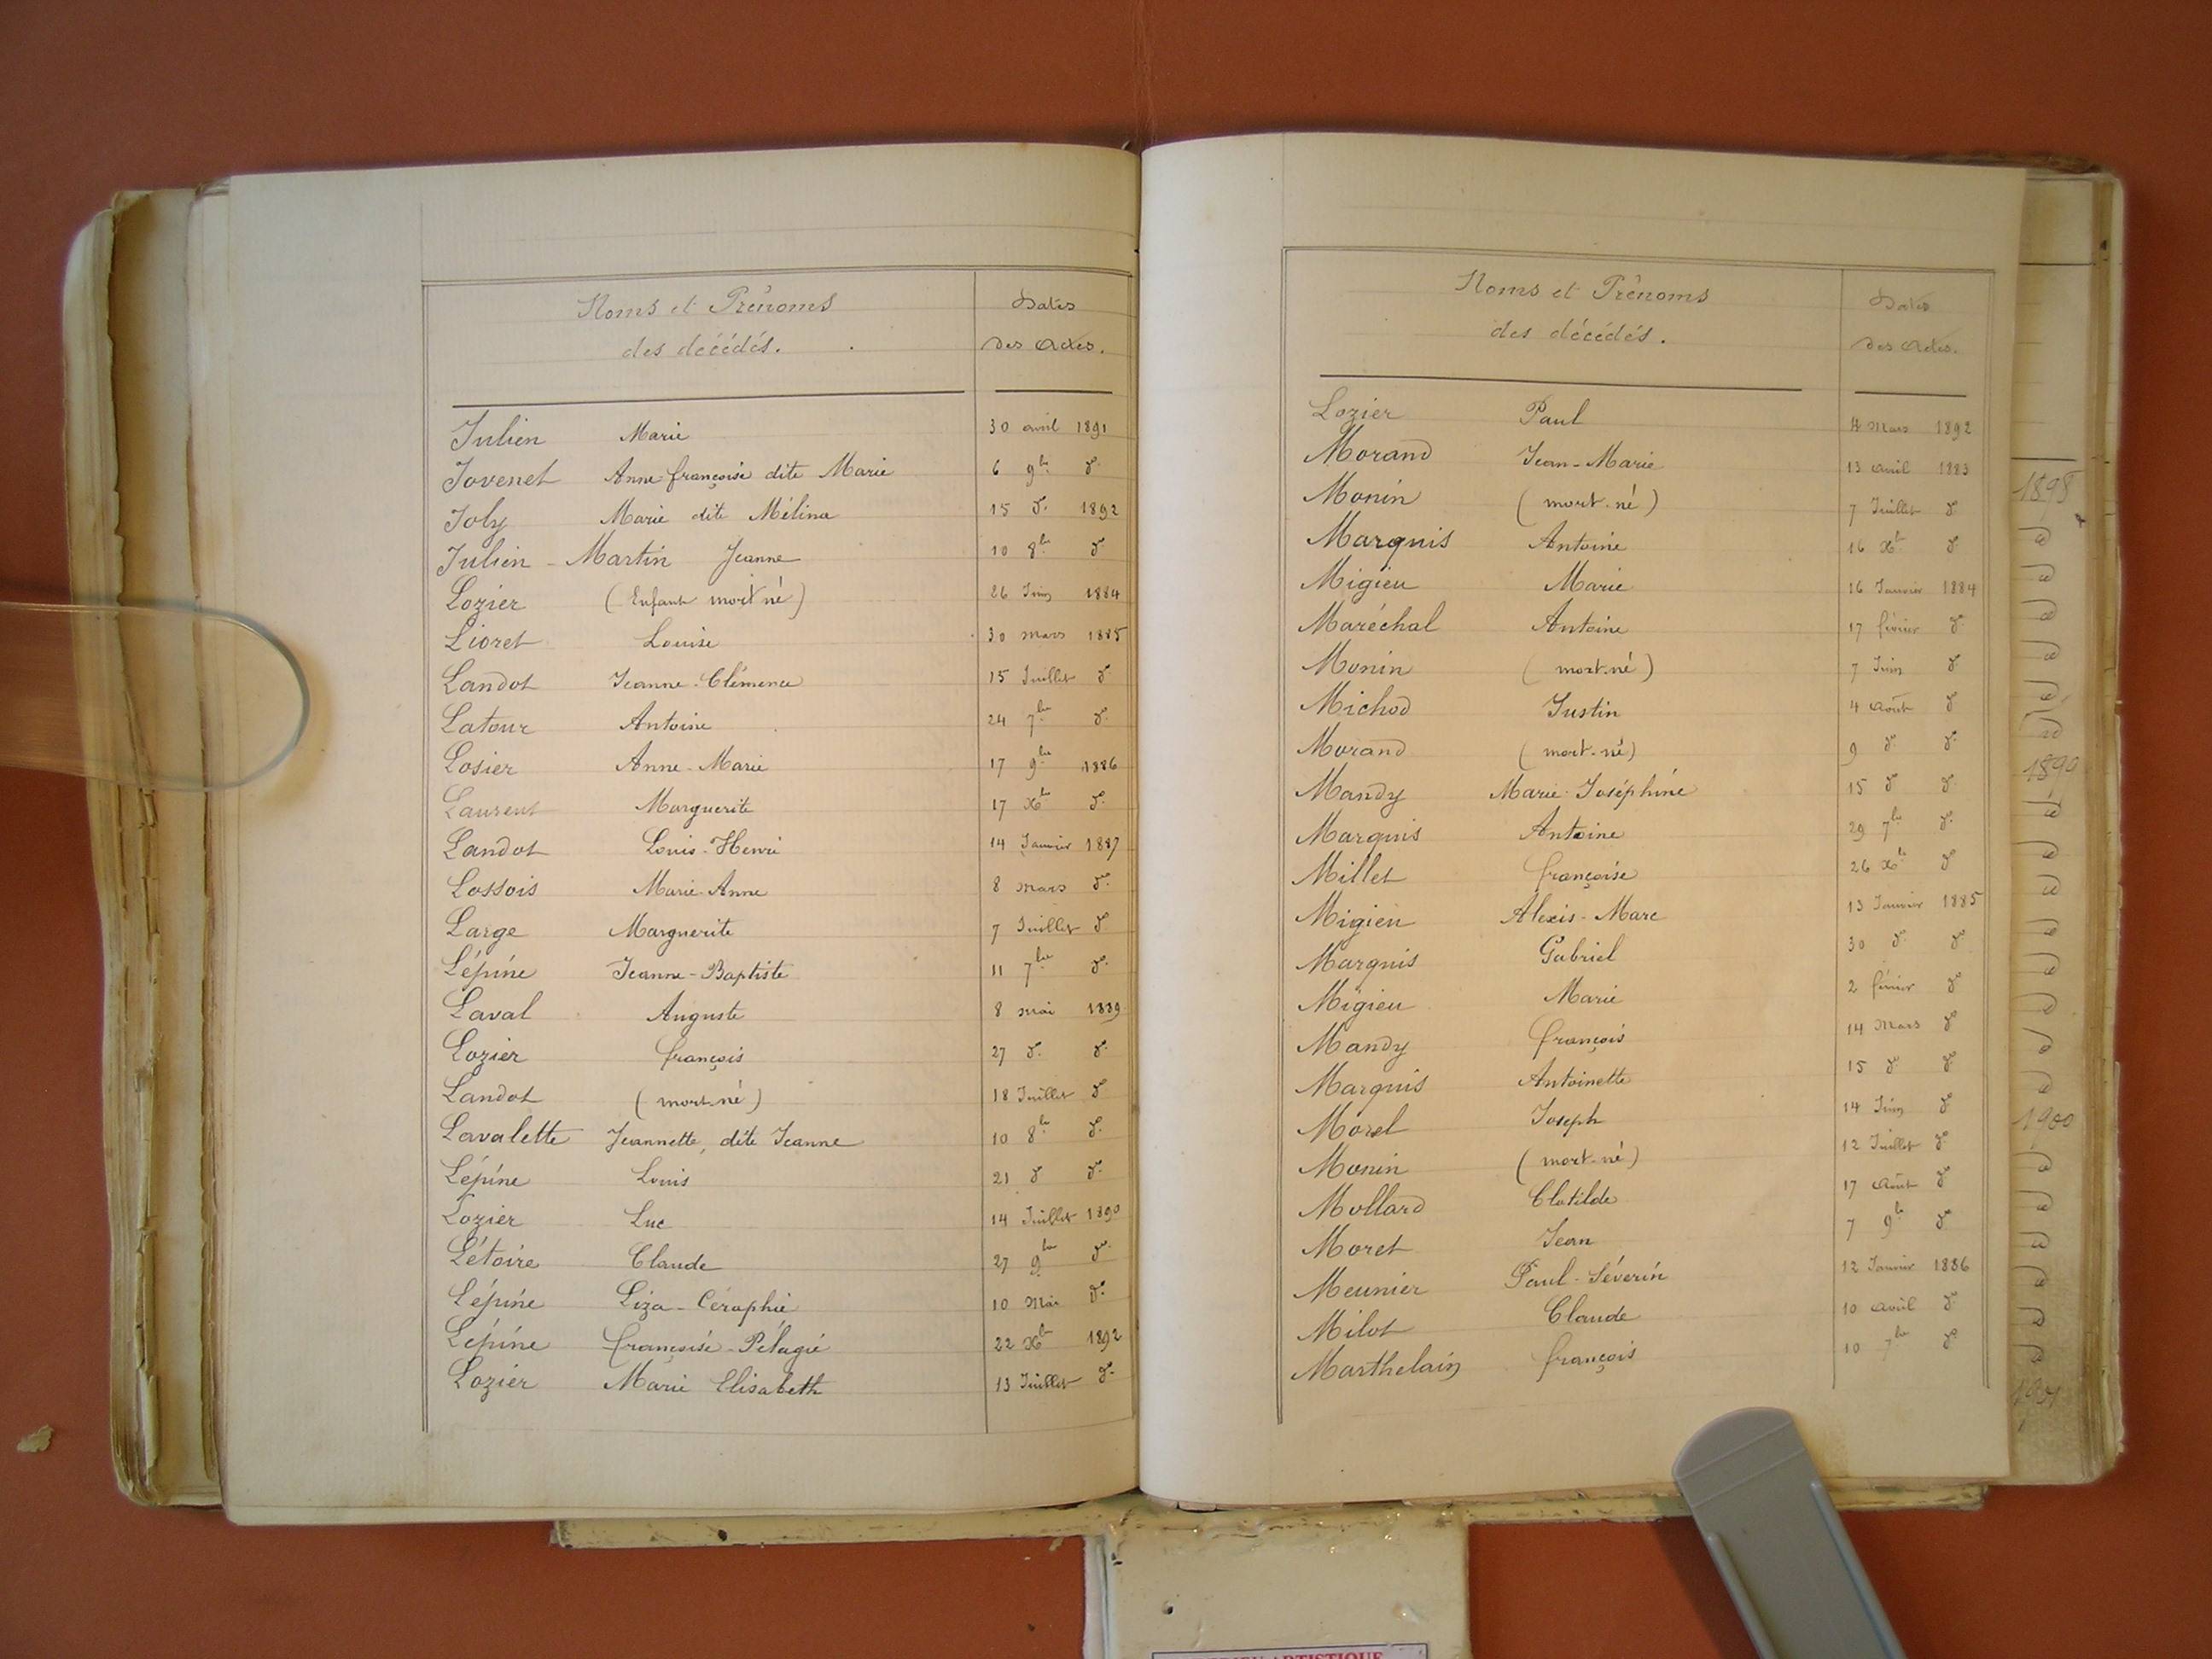 Noms et Prénoms Dates
des décédés. des Actes.
Julien Marie 30 avril 1891
Jovenet Anne françoise dite Marie 6 9bre do
Joly Marie dite Mélina 15 do 1892
Julien - Martin Jeanne 10 8bre do
Lozier (Enfant mort né) 26 Juin 1884
Lioret Louise 30 mars 1885
Landot Jeanne-Clémence 15 Juillet do
Latour Antoine 24 7bre do
Losier Anne-Marie 17 9bre 1886
Laurent Marguerite 17 Xbre do
Landot Louis-Henri 14 Janvier 1887
Lossois Marie-Anne 8 mars do
Large Marguerite 7 Juillet do
Lépine Jeanne-Baptiste 11 7bre do
Laval Auguste 8 mai 1889
Lozier françois 27 do do
Landot (mort-né) 18 Juillet do
Lavalette Jeannette, dite Jeanne 10 8bre do
Lépine Louis 21 do do
Lozier Luc 14 Juillet 1890
Létoire Claude 27 9bre do
Lépine Liza-Céraphie 10 Mai do
Lépine françoise-Pélagie 22 Xbre 1892
Lozier Marie Elisabeth 13 Juillet do
Noms et Prénoms Dates
des décédés. des Actes.
Lozier Paul 4 Mars 1892
Morand Jean-Marie 13 avril 1883
Monin (mort-né) 7 Juillet do
Marquis Antoine 16 Xbre do
Migieu Marie 16 Janvier 1884
Maréchal Antoine 17 février do
Monin (mort-né) 7 Juin do
Michod Justin 4 Août do
Morand (mort-né) 9 do do
Mandy Marie-Joséphine 15 do do
Marquis Antoine 29 7bre do
Millet françoise 26 Xbre do
Migieu Alexis-Marc 13 Janvier 1885
Marquis Gabriel 30 do do
Migieu Marie 2 février do
Mandy françois 14 Mars do
Marquis Antoinette 15 do do
Morel Joseph 14 Juin do
Monin (mort-né) 12 Juillet do
Mollard Clotilde 17 Août do
Moret Jean 7 9bre do
Meunier Paul-Séverin 12 Janvier 1886
Milot Claude 10 avril do
Marthelain françois 10 7bre do
1898
1890
1900